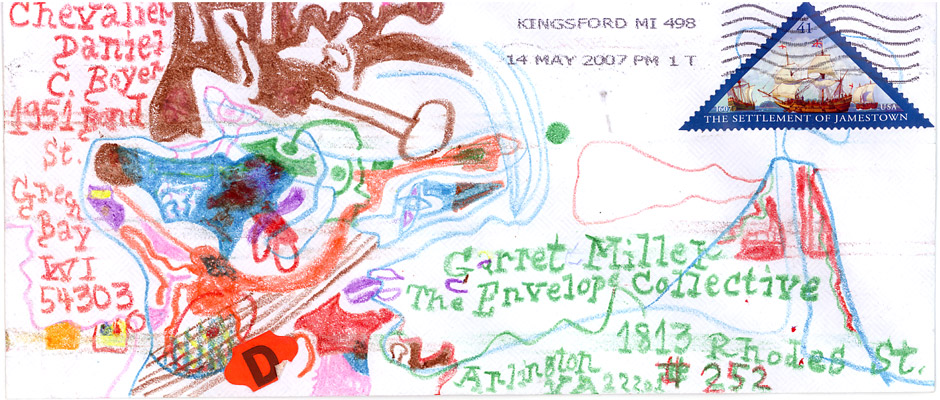 Chevalier
Daniel
C. Boyer
1951 Bond
St.
Green
Bay
WI
54303
KINGSFORD MI 498
14 MAY 2007 PM 1 T
41
1607
USA
THE SETTLEMENT OF JAMESTOWN
Garret Miller
The Envelope Collective
1813 Rhodes St.
# 252
Arlington
VA 22201
D